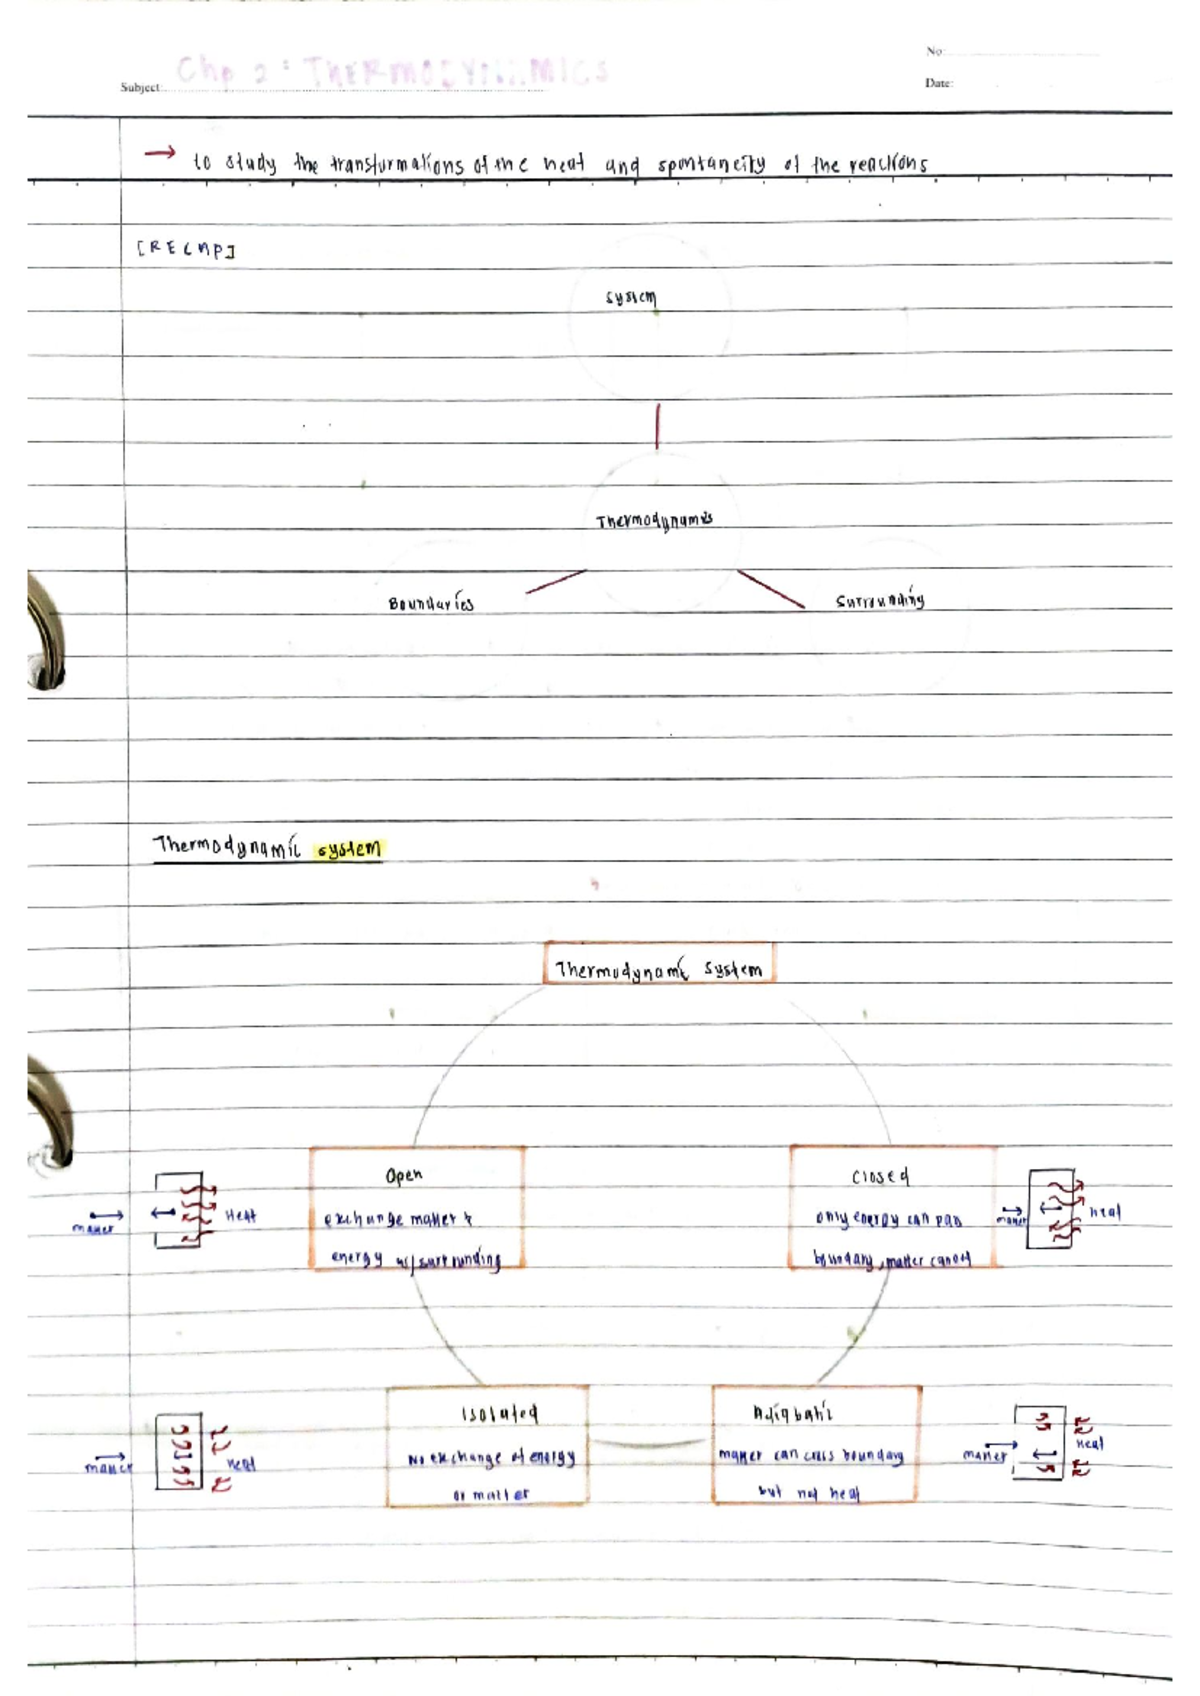 No:
Chp 2 : THERMODYNAMICS
Subject:
Date:
→ to study the transformations of the heat and spontaneity of the reactions
[RECAP]
system
Thermodynamics
Boundaries
Surrounding
Thermodynamic system
Thermodynamic system
Open
exchange matter &
energy w/ surrounding
matter
Heat
Closed
only energy can pass
boundary, matter cannot
matter
heat
Isolated
No exchange of energy
or matter
matter
heat
Adiabatic
matter can cross boundary
but not heat
matter
heat